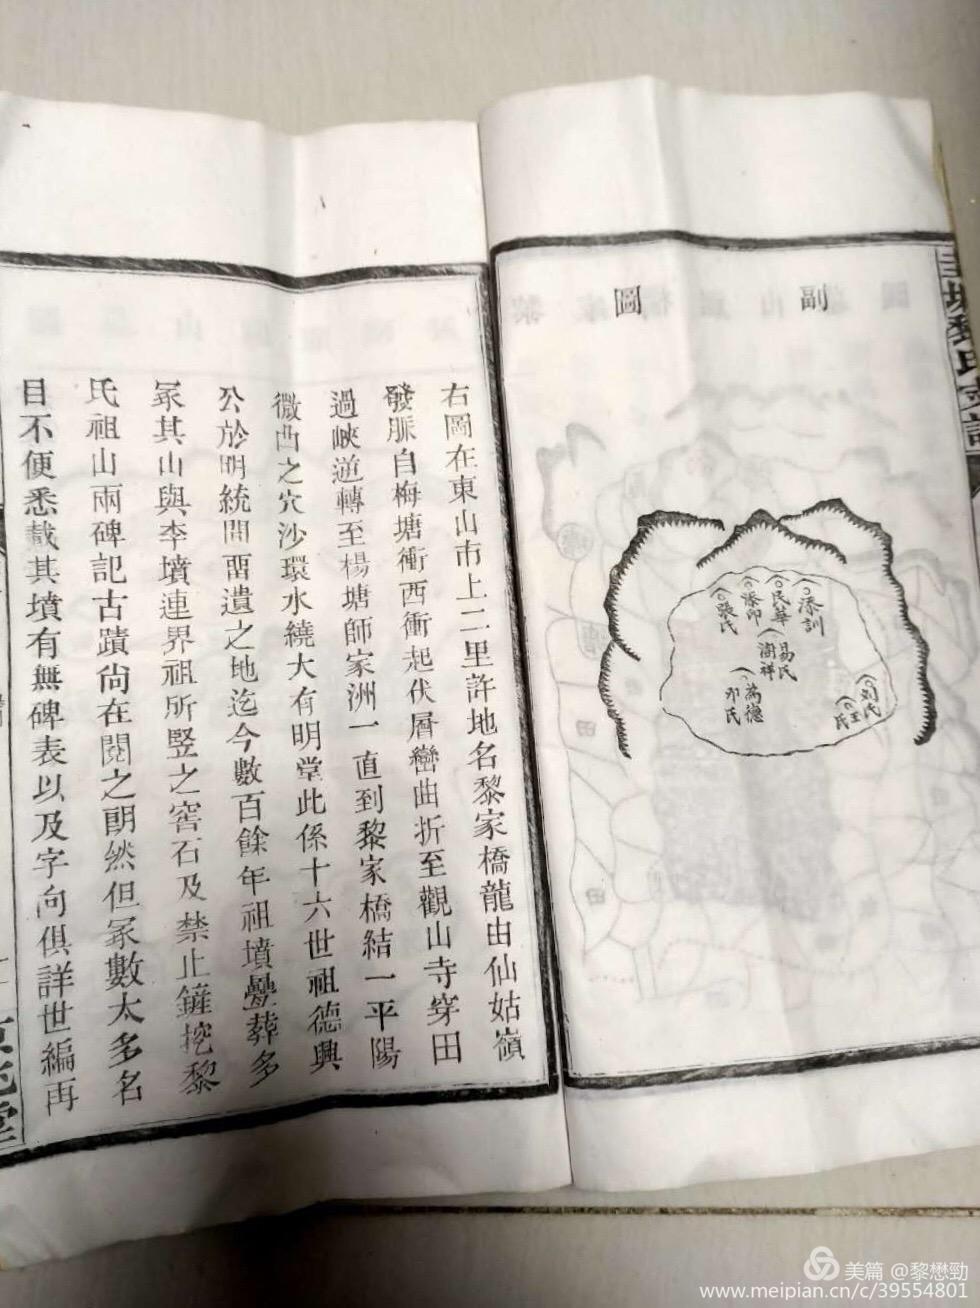 副圖
添訓
民華
添卯
張氏
易氏
渝祥
萬德
邓氏
劉氏
王氏
右圖在東山市上二里許地名黎家橋龍由仙姑嶺
發脈自梅塘衝西衝起伏層巒曲折至觀山寺穿田
過峽逆轉至楊塘師家洲一直到黎家橋結一平陽
微凸之穴沙環水繞大有明堂此係十六世祖德興
公於明統間畱遺之地迄今數百餘年祖墳疊葬多
冢其山與李墳連界祖所竪之窖石及禁止鏟挖黎
氏祖山兩碑記古蹟尙在閱之朗然但冢數太多名
目不便悉載其墳有無碑表以及字向俱詳世編再
美篇 @黎懋勁
www.meipian.cn/c/39554801